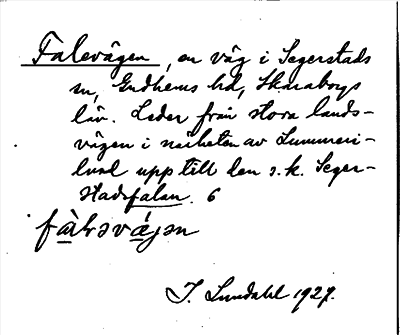 Falevägen, en väg i Segerstads
sn, Gudhems hd, Skaraborgs
län. Leder från stora lands-
vägen i närheten av Lummeri-
lund upp till den s.k. Seger-
stadsfalan. 6
fàləvǽjən
J. Lundahl 1927.